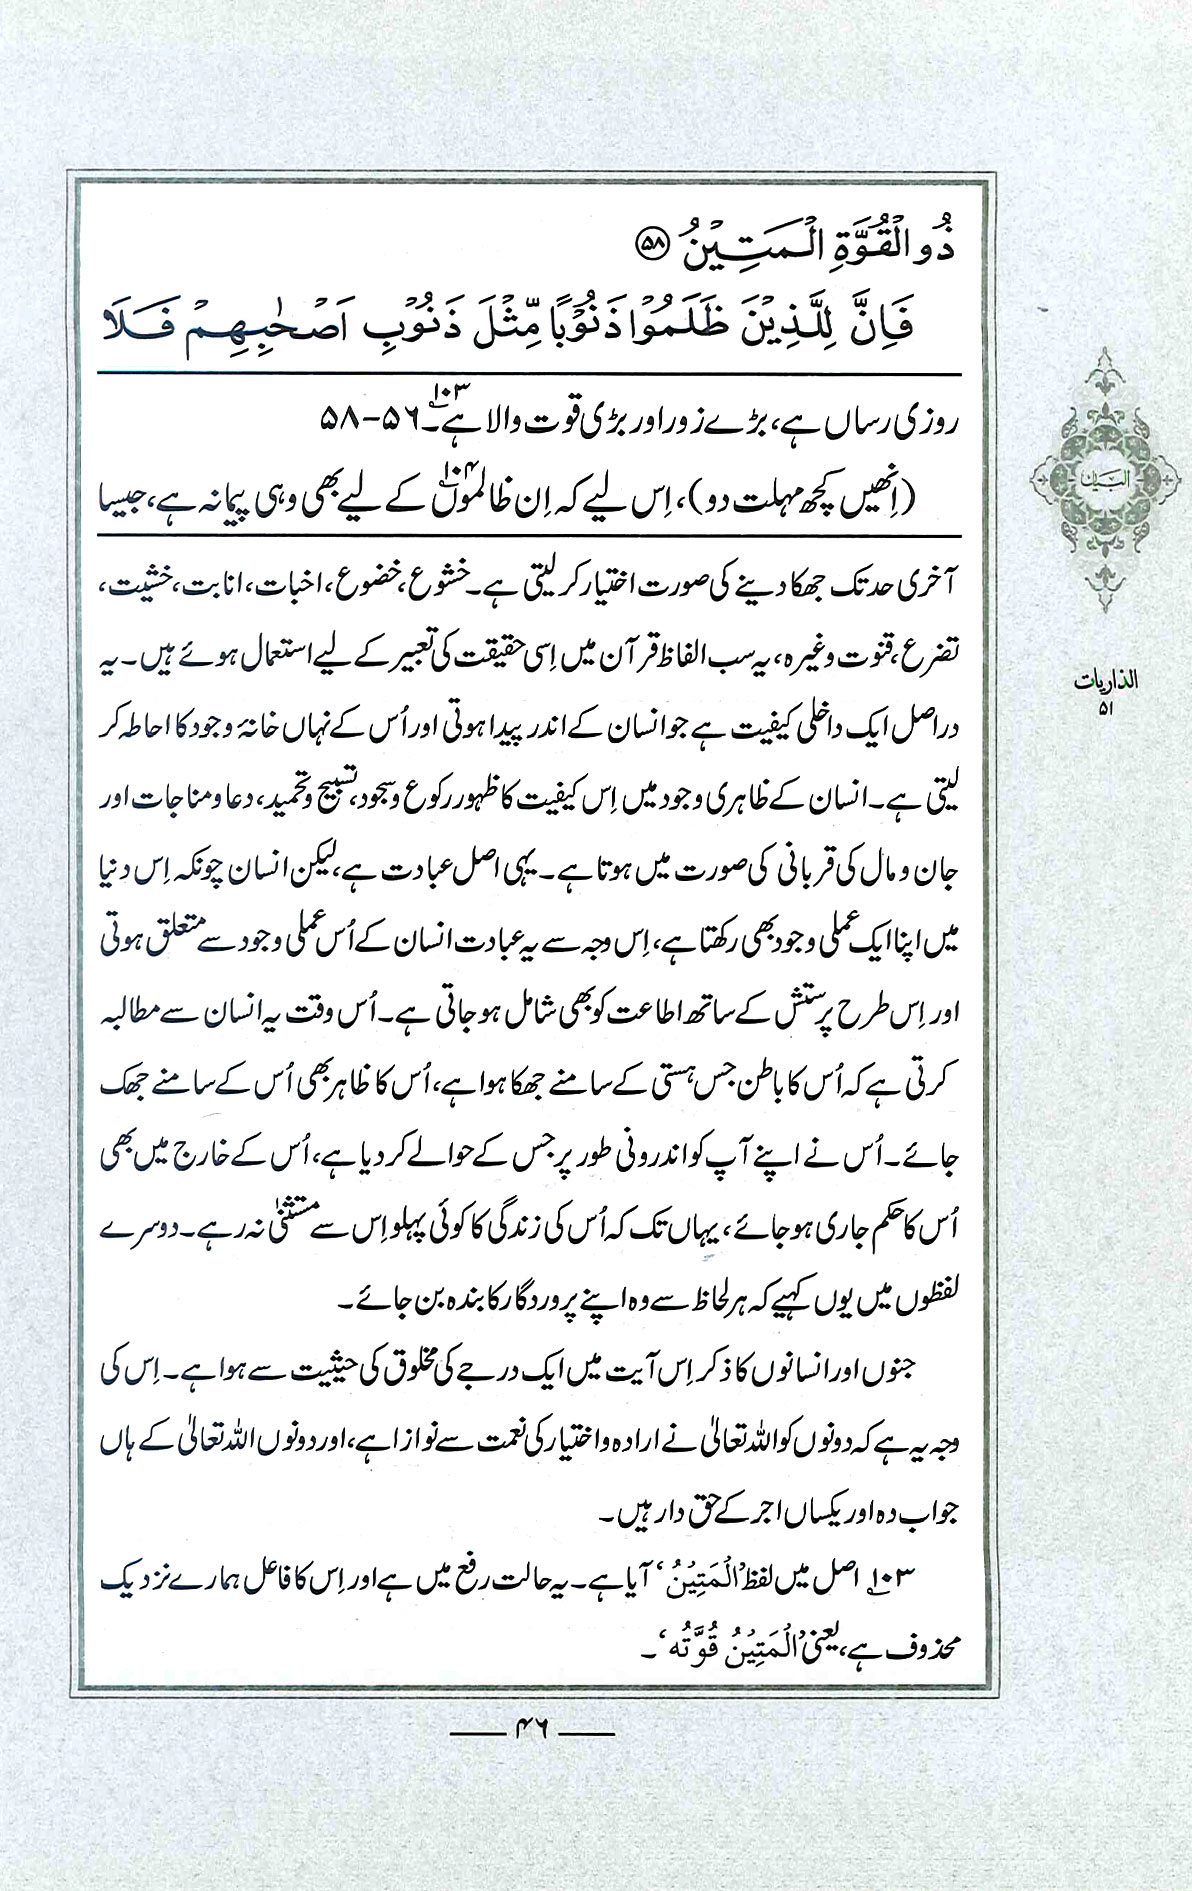 ذُو الْقُوَّةِ الْمَتِيْنُ ﴿۵۸﴾
فَاِنَّ لِلَّذِيْنَ ظَلَمُوْا ذَنُوْبًا مِّثْلَ ذَنُوْبِ اَصْحٰبِهِمْ فَلَا
روزی رساں ہے، بڑے زور اور بڑی قوت والا ہے۔۱۰۳ ۵۶-۵۸
(اِنھیں کچھ مہلت دو)، اِس لیے کہ اِن ظالموں۱۰۴ کے لیے بھی وہی پیمانہ ہے، جیسا
آخری حد تک جھکا دینے کی صورت اختیار کر لیتی ہے۔ خشوع، خضوع، اخبات، انابت، خشیت،
تضرع، قنوت وغیرہ، یہ سب الفاظ قرآن میں اِسی حقیقت کی تعبیر کے لیے استعمال ہوئے ہیں۔ یہ
دراصل ایک داخلی کیفیت ہے جو انسان کے اندر پیدا ہوتی اور اُس کے نہاں خانۂ وجود کا احاطہ کر
لیتی ہے۔ انسان کے ظاہری وجود میں اِس کیفیت کا ظہور رکوع و سجود، تسبیح و تحمید، دعا و مناجات اور
جان و مال کی قربانی کی صورت میں ہوتا ہے۔ یہی اصل عبادت ہے، لیکن انسان چونکہ اِس دنیا
میں اپنا ایک عملی وجود بھی رکھتا ہے، اِس وجہ سے یہ عبادت انسان کے اُس عملی وجود سے متعلق ہوتی
اور اِس طرح پرستش کے ساتھ اطاعت کو بھی شامل ہو جاتی ہے۔ اُس وقت یہ انسان سے مطالبہ
کرتی ہے کہ اُس کا باطن جس ہستی کے سامنے جھکا ہوا ہے، اُس کا ظاہر بھی اُس کے سامنے جھک
جائے۔ اُس نے اپنے آپ کو اندرونی طور پر جس کے حوالے کر دیا ہے، اُس کے خارج میں بھی
اُس کا حکم جاری ہو جائے، یہاں تک کہ اُس کی زندگی کا کوئی پہلو اِس سے مستثنیٰ نہ رہے۔ دوسرے
لفظوں میں یوں کہیے کہ ہر لحاظ سے وہ اپنے پروردگار کا بندہ بن جائے۔
جنوں اور انسانوں کا ذکر اِس آیت میں ایک درجے کی مخلوق کی حیثیت سے ہوا ہے۔ اِس کی
وجہ یہ ہے کہ دونوں کو اللہ تعالیٰ نے ارادہ و اختیار کی نعمت سے نوازا ہے، اور دونوں اللہ تعالیٰ کے ہاں
جواب دہ اور یکساں اجر کے حق دار ہیں۔
۱۰۳ اصل میں لفظ 'الْمَتِيْنُ' آیا ہے۔ یہ حالت رفع میں ہے اور اِس کا فاعل ہمارے نزدیک
محذوف ہے، یعنی 'الْمَتِيْنُ قُوَّتُه'۔
۴۶
البیان
الذاریات
۵۱